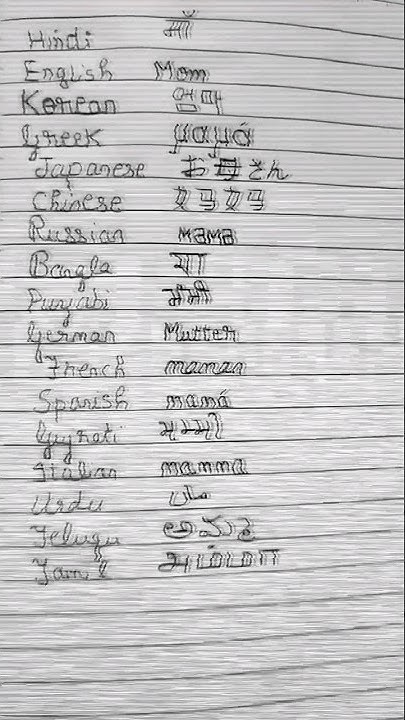 Hindi माँ
English Mom
Korean 엄마
Greek μαμά
Japanese お母さん
Chinese 女马女马
Russian мама
Bangla या
Punjabi मंमी
German Mutter
French maman
Spanish mamá
Gujrati મમ્મી
Italian mamma
Urdu ماں
Telugu అమ్మ
Tamil அம்மா